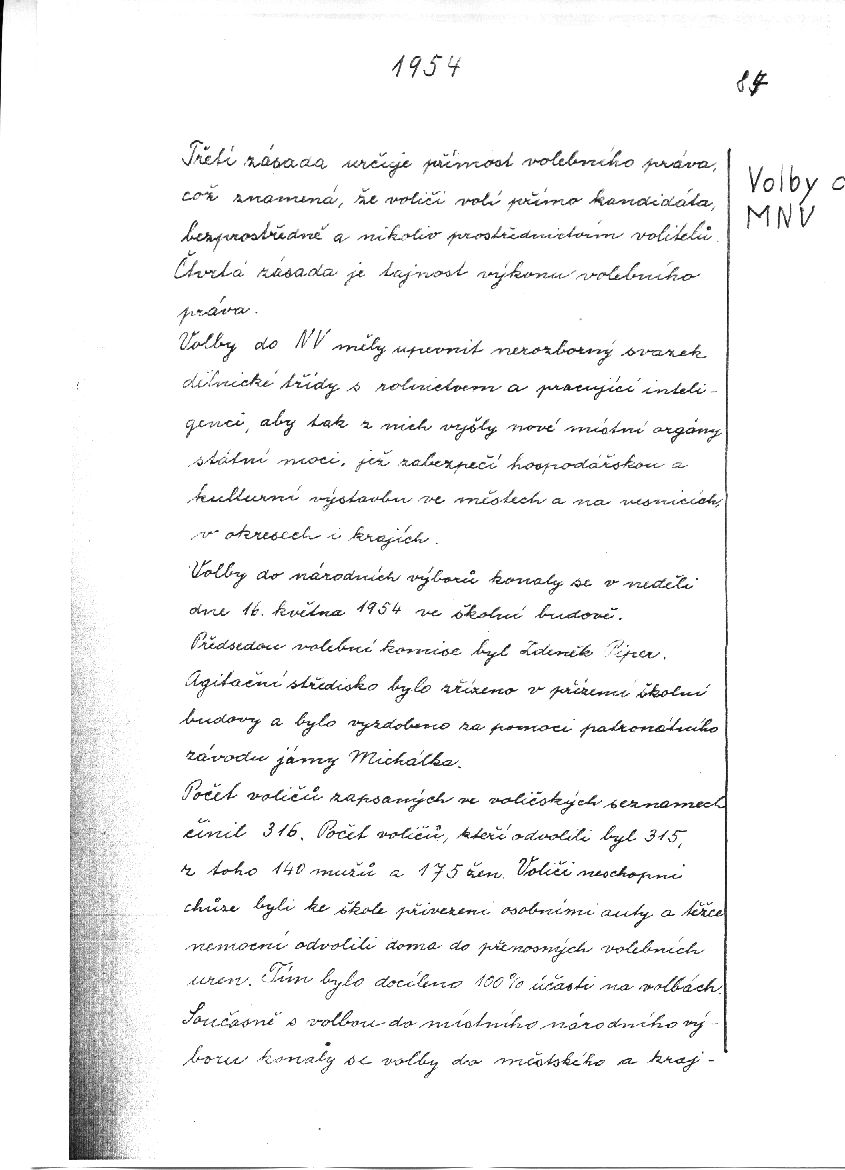 1954
87
Třetí zásada určuje přímost volebního práva,
což znamená, že voliči volí přímo kandidáta,
bezprostředně a nikoliv prostřednictvím volitelů.
Čtvrtá zásada je tajnost výkonu volebního
práva.
Volby do NV měly upevnit nerozborný svazek
dělnické třídy s rolnictvem a pracující inteli-
gencí, aby tak z nich vyšly nové místní orgány
státní moci, jež zabezpečí hospodářskou a
kulturní výstavbu ve městech a na vesnicích,
v okresech i krajích.
Volby do národních výborů konaly se v neděli
dne 16. května 1954 ve školní budově.
Předsedou volební komise byl Zdeněk Piper.
Agitační středisko bylo zřízeno v přízemí školní
budovy a bylo vyzdobeno za pomoci patronátního
závodu jámy Michálka.
Počet voličů zapsaných ve voličských seznamech
činil 316. Počet voličů, kteří odvolili byl 315,
z toho 140 mužů a 175 žen. Voliči neschopni
chůze byli ke škole přivezeni osobními auty a těžce
nemocní odvolili doma do přenosných volebních
uren. Tím bylo docíleno 100% účasti na volbách.
Současně s volbou do místního národního vý-
boru konaly se volby do městského a kraj-
Volby d
MNV